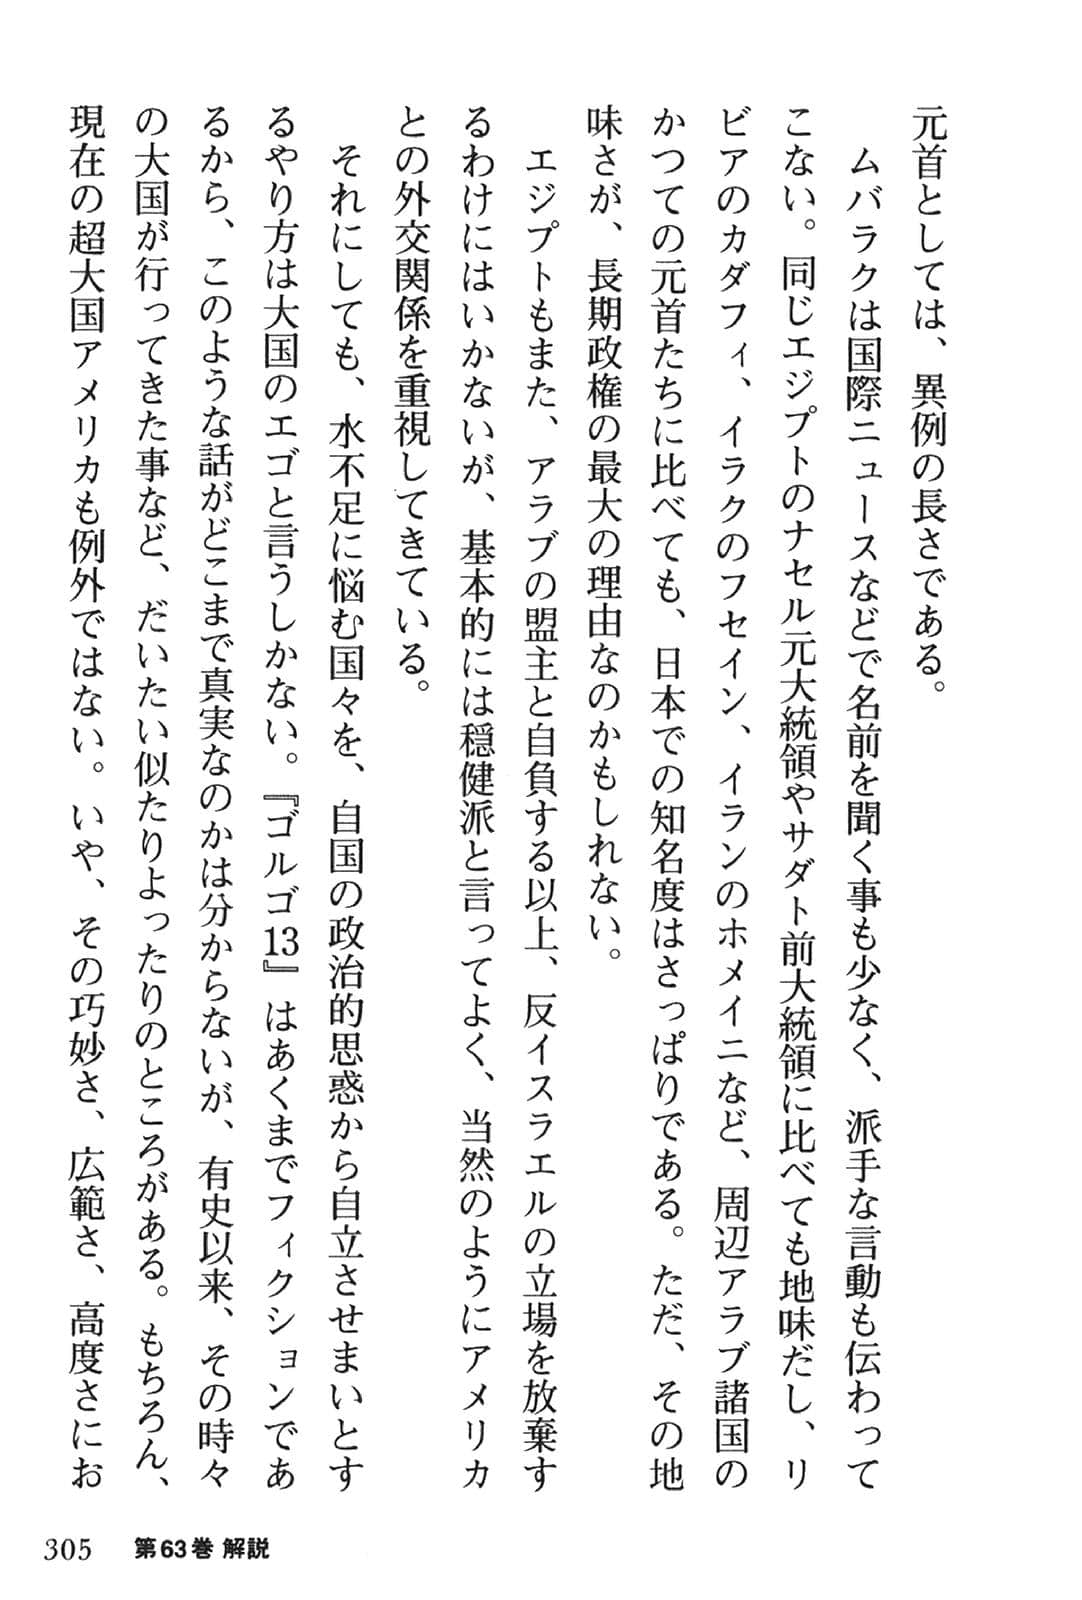 元首としては、異例の長さである。
ムバラクは国際ニュースなどで名前を聞く事も少なく、派手な言動も伝わって
こない。同じエジプトのナセル元大統領やサダト前大統領に比べても地味だし、リ
ビアのカダフィ、イラクのフセイン、イランのホメイニなど、周辺アラブ諸国の
かつての元首たちに比べても、日本での知名度はさっぱりである。ただ、その地
味さが、長期政権の最大の理由なのかもしれない。
エジプトもまた、アラブの盟主と自負する以上、反イスラエルの立場を放棄す
るわけにはいかないが、基本的には穏健派と言ってよく、当然のようにアメリカ
との外交関係を重視してきている。
それにしても、水不足に悩む国々を、自国の政治的思惑から自立させまいとす
るやり方は大国のエゴと言うしかない。『ゴルゴ13』はあくまでフィクションであ
るから、このような話がどこまで真実なのかは分からないが、有史以来、その時々
の大国が行ってきた事など、だいたい似たりよったりのところがある。もちろん、
現在の超大国アメリカも例外ではない。いや、その巧妙さ、広範さ、高度さにお
305 第63巻 解説